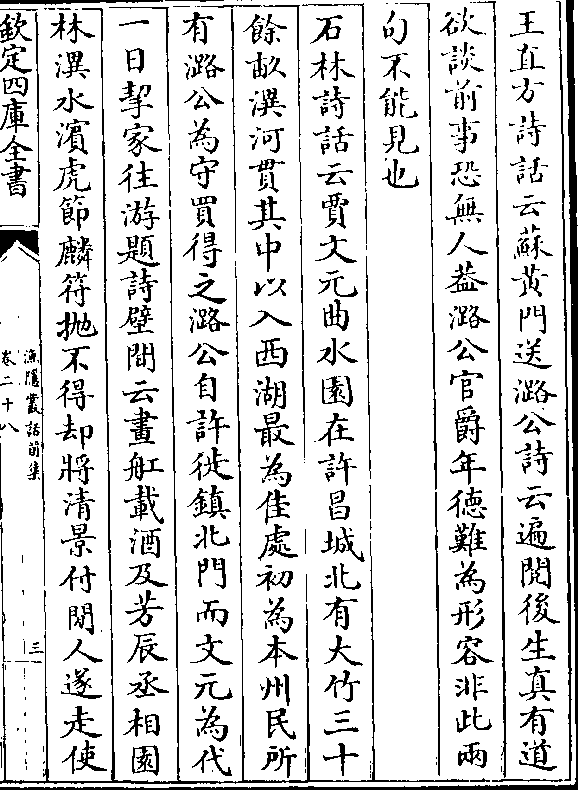 王直方詩話云蘇黄門送潞公詩云遍閱後生真有道
欲談前事恐無人葢潞公官爵年徳難為形容非此兩
句不能見也
石林詩話云賈文元曲水園在許昌城北有大竹三十
餘畝潩河貫其中以入西湖最為佳處初為本州民所
有潞公為守買得之潞公自許徙鎮北門而文元為代
一日挈家往游題詩壁間云畫舡載酒及芳辰丞相園
林潩水濱虎節麟符抛不得却將清景付閒人遂走使
欽定四庫全書
漁隱叢話前集
卷二十八
三